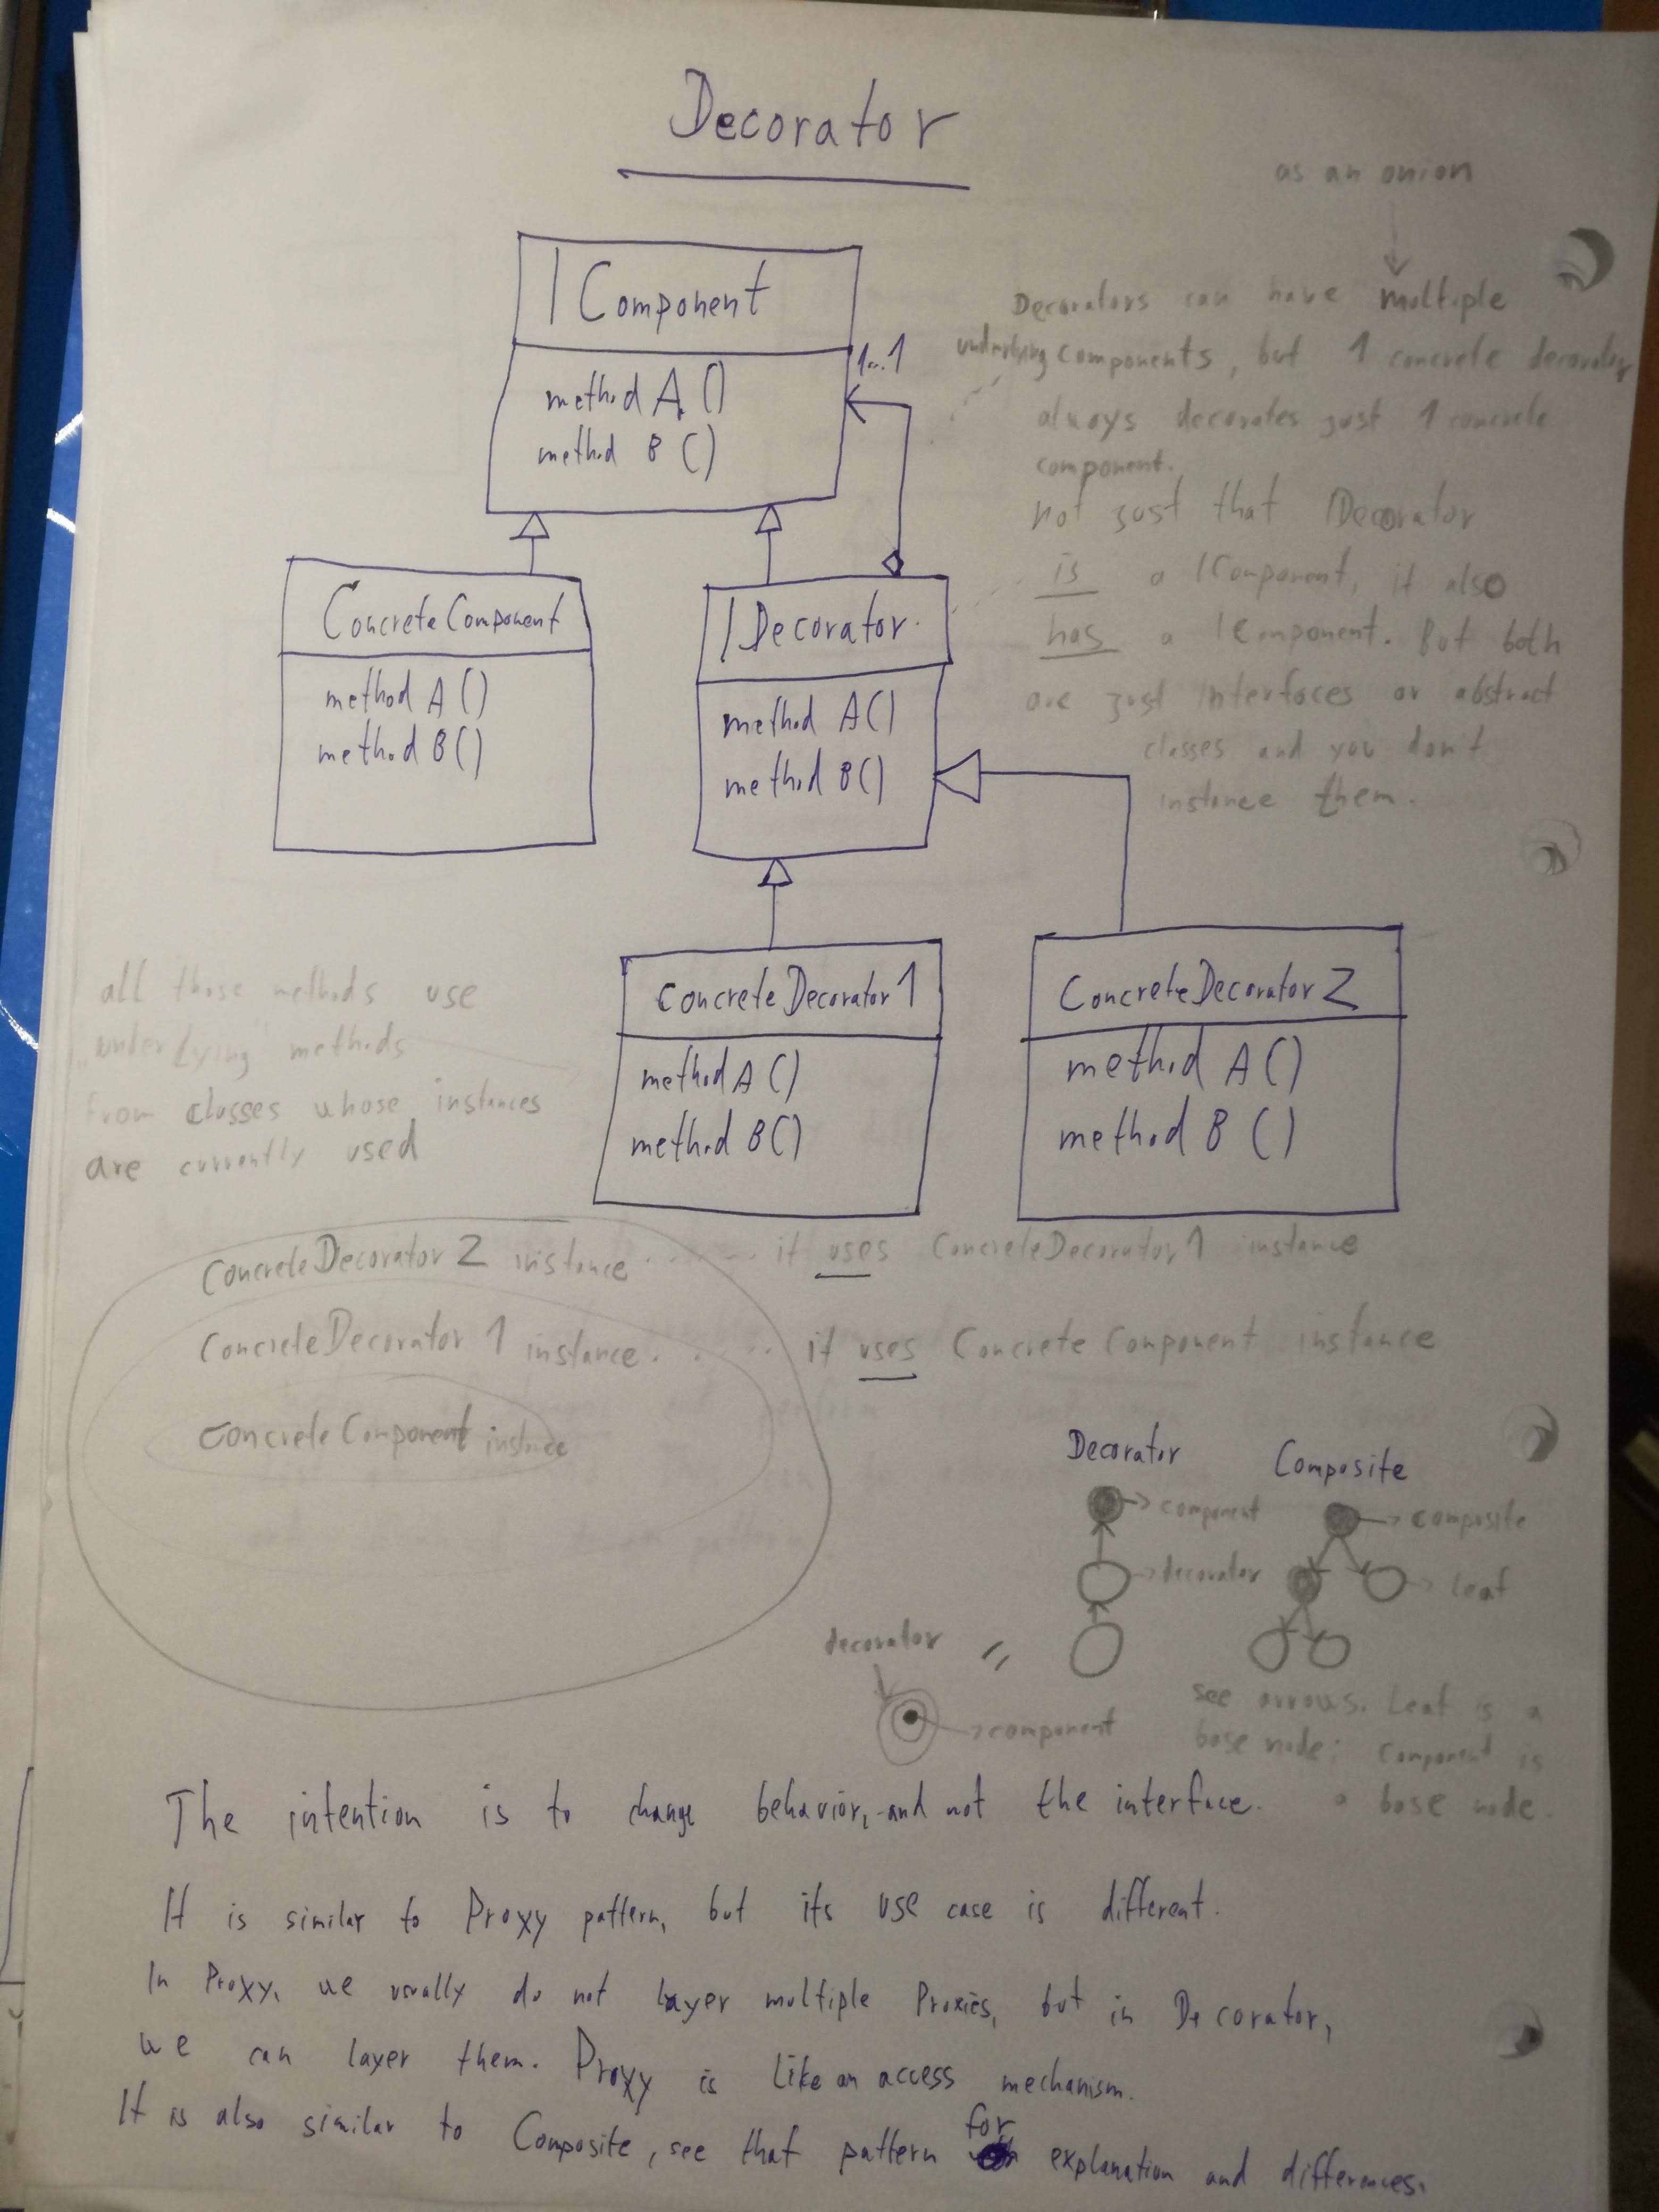 Decorator
as an onion
IComponent
method A ()
method B ()
1..1
Decorators can have multiple
underlying components, but 1 concrete decorator
always decorates just 1 concrete
component.
not just that IDecorator
is a IComponent, it also
has a IComponent. But both
are just interfaces or abstract
classes and you don't
instance them.
ConcreteComponent
method A ()
method B ()
IDecorator
method A()
method B()
all those methods use
„underlying" methods
from classes whose instances
are currently used
ConcreteDecorator 1
method A ()
method B()
ConcreteDecorator 2
method A ()
method B ()
ConcreteDecorator 2 instance ....... it uses ConcreteDecorator 1 instance
ConcreteDecorator 1 instance ....... it uses Concrete Component instance
ConcreteComponent instance
Decorator
component
decorator
Composite
composite
leaf
decorator
component
see arrows. Leaf is a
base node; component is
a base node.
The intention is to change behavior, and not the interface.
It is similar to Proxy pattern, but its use case is different.
In Proxy, we usually do not layer multiple Proxies, but in Decorator,
we can layer them. Proxy is like an access mechanism.
It is also similar to Composite, see that pattern for explanation and differences.